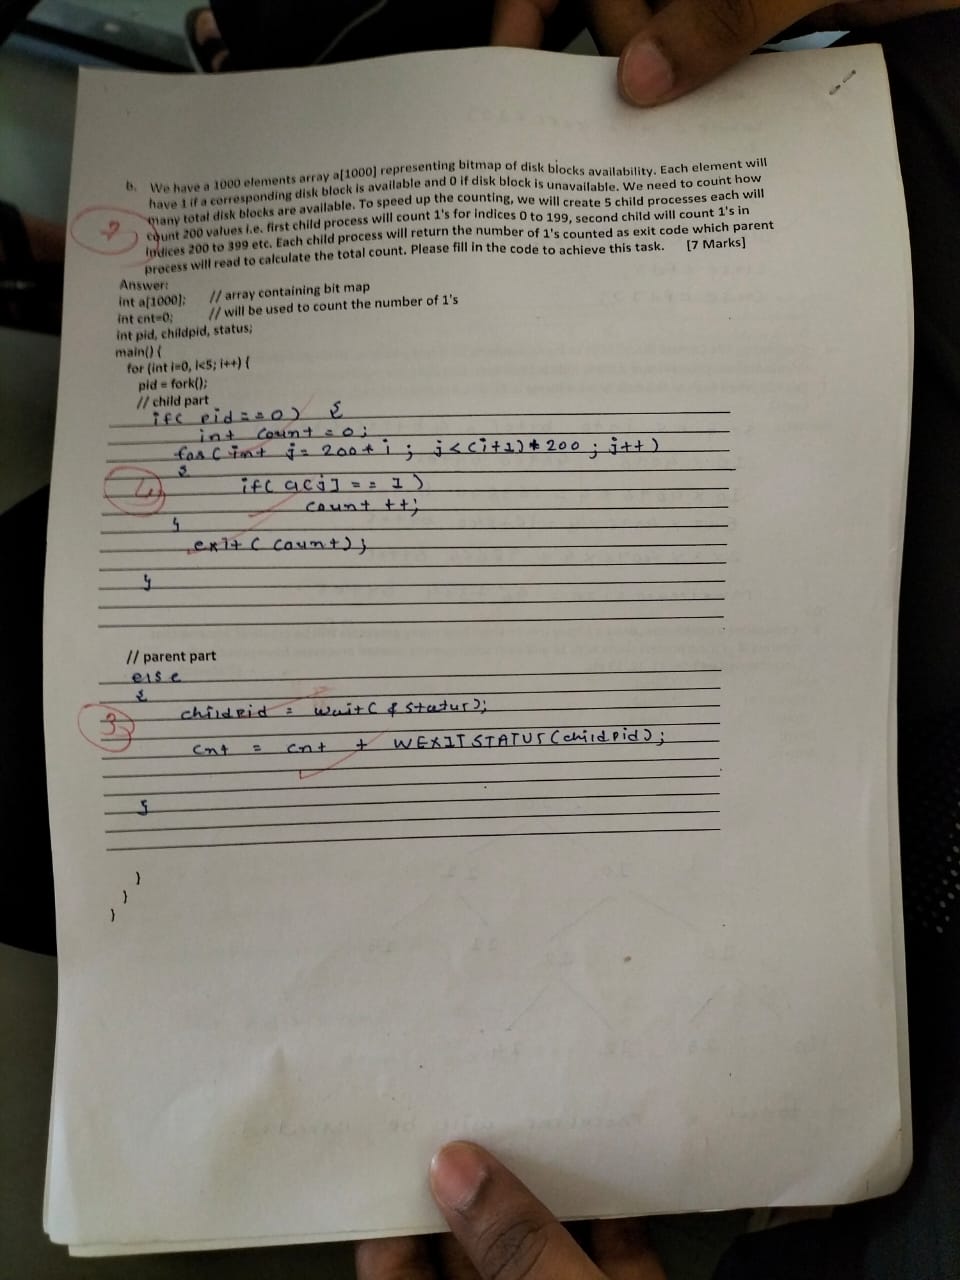 b. We have a 1000 elements array a[1000] representing bitmap of disk blocks availability. Each element will
have 1 if a corresponding disk block is available and 0 if disk block is unavailable. We need to count how
many total disk blocks are available. To speed up the counting, we will create 5 child processes each will
count 200 values i.e. first child process will count 1's for indices 0 to 199, second child will count 1's in
indices 200 to 399 etc. Each child process will return the number of 1's counted as exit code which parent
process will read to calculate the total count. Please fill in the code to achieve this task. [7 Marks]
7
Answer:
int a[1000]; // array containing bit map
int cnt=0; // will be used to count the number of 1's
int pid, childpid, status;
main() {
for (int i=0, i<5; i++) {
pid = fork();
// child part
if( pid==0) {
int count = 0;
for ( int j= 200*i ; j<(i+1)*200 ; j++)
{
4
if( a[j] == 1 )
count ++;
}
exit ( count);
}
// parent part
else
{
childpid = wait( & status);
3
cnt = cnt + WEXITSTATUS(childpid);
}
}
}
}